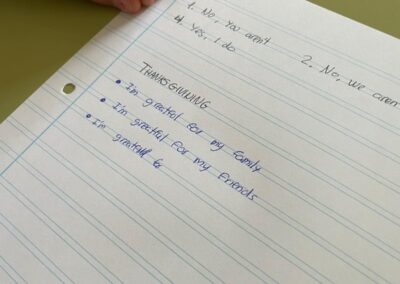 1. No, you aren't
4. Yes, I do
2. No, we aren
THANKSGIVING
• I'm greatful for my family
• I'm greatful for my friends
• I'm greatful fo